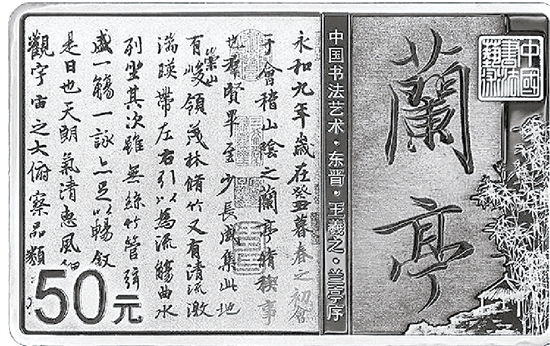 中國書法藝術
蘭亭
中国书法艺术·东晋·王羲之·兰亭序
永和九年歲在癸丑暮春之初會
于會稽山陰之蘭亭脩稧事
也羣賢畢至少長咸集此地
有崇山峻領茂林脩竹又有清流激
湍暎帶左右引以為流觴曲水
列坐其次雖無絲竹管弦
盛一觴一詠亦足以暢敘
是日也天朗氣清惠風和
觀宇宙之大俯察品類
50元